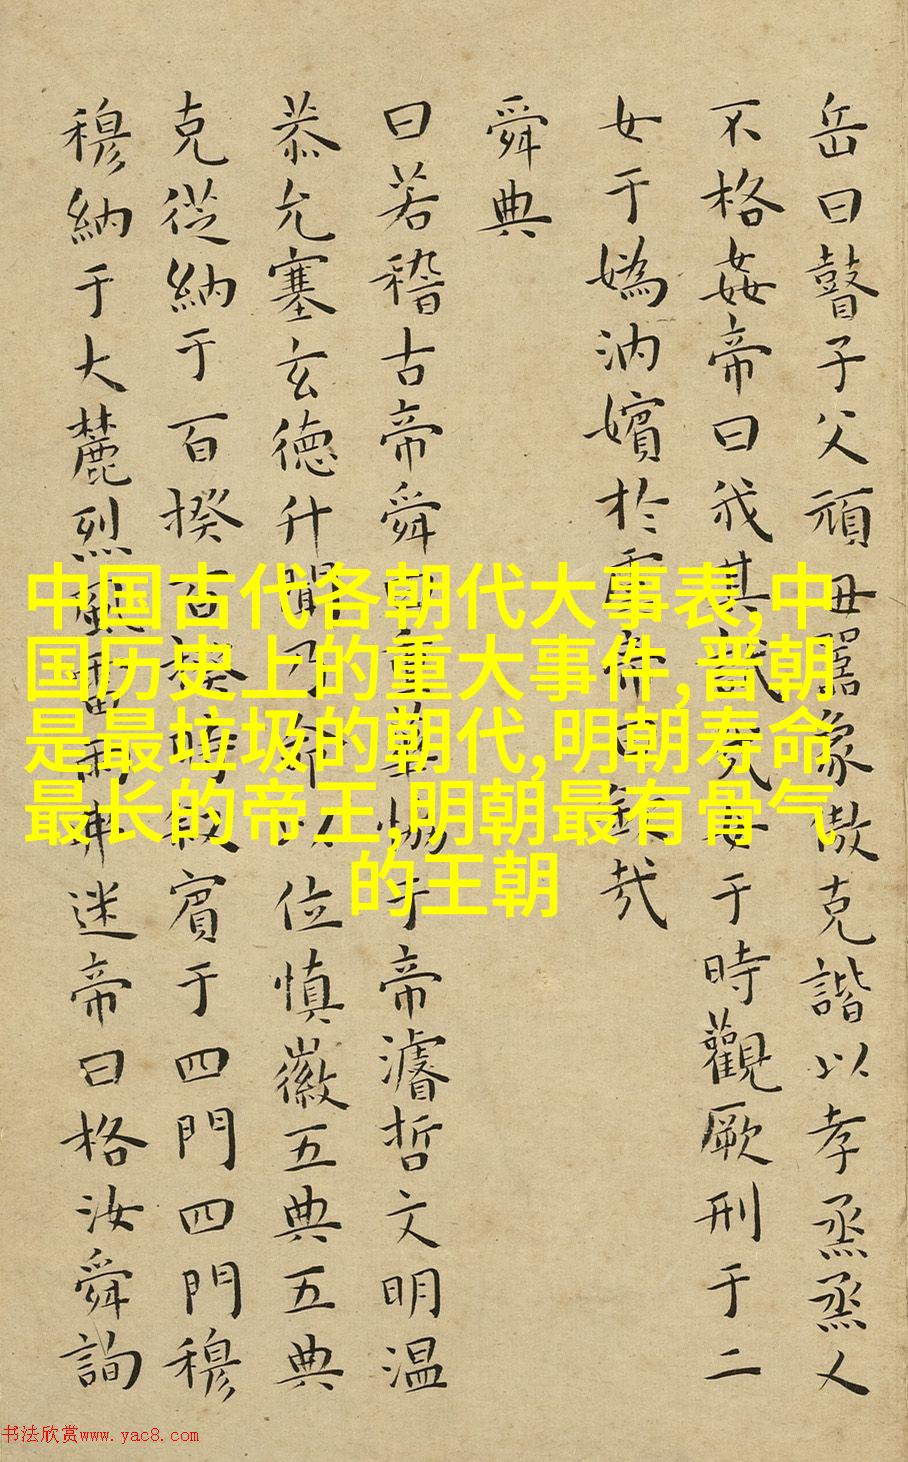 岳曰瞽子父頑母嚚象傲克諧以孝烝烝乂
不格姦帝曰我其試哉女于時觀厥刑于二
女于媯汭嬪於虞帝曰欽哉
舜典
曰若稽古帝舜曰重華協于帝濬哲文明温
恭允塞玄德升聞乃命以位慎徽五典五典
克從納于百揆百揆時叙賓于四門四門穆
穆納于大麓烈風雷雨弗迷帝曰格汝舜詢
中国古代各朝代大事表,中
国历史上的重大事件,晋朝
是最垃圾的朝代,明朝寿命
最长的帝王,明朝最有骨气
的王朝
书法欣赏www.yac8.com